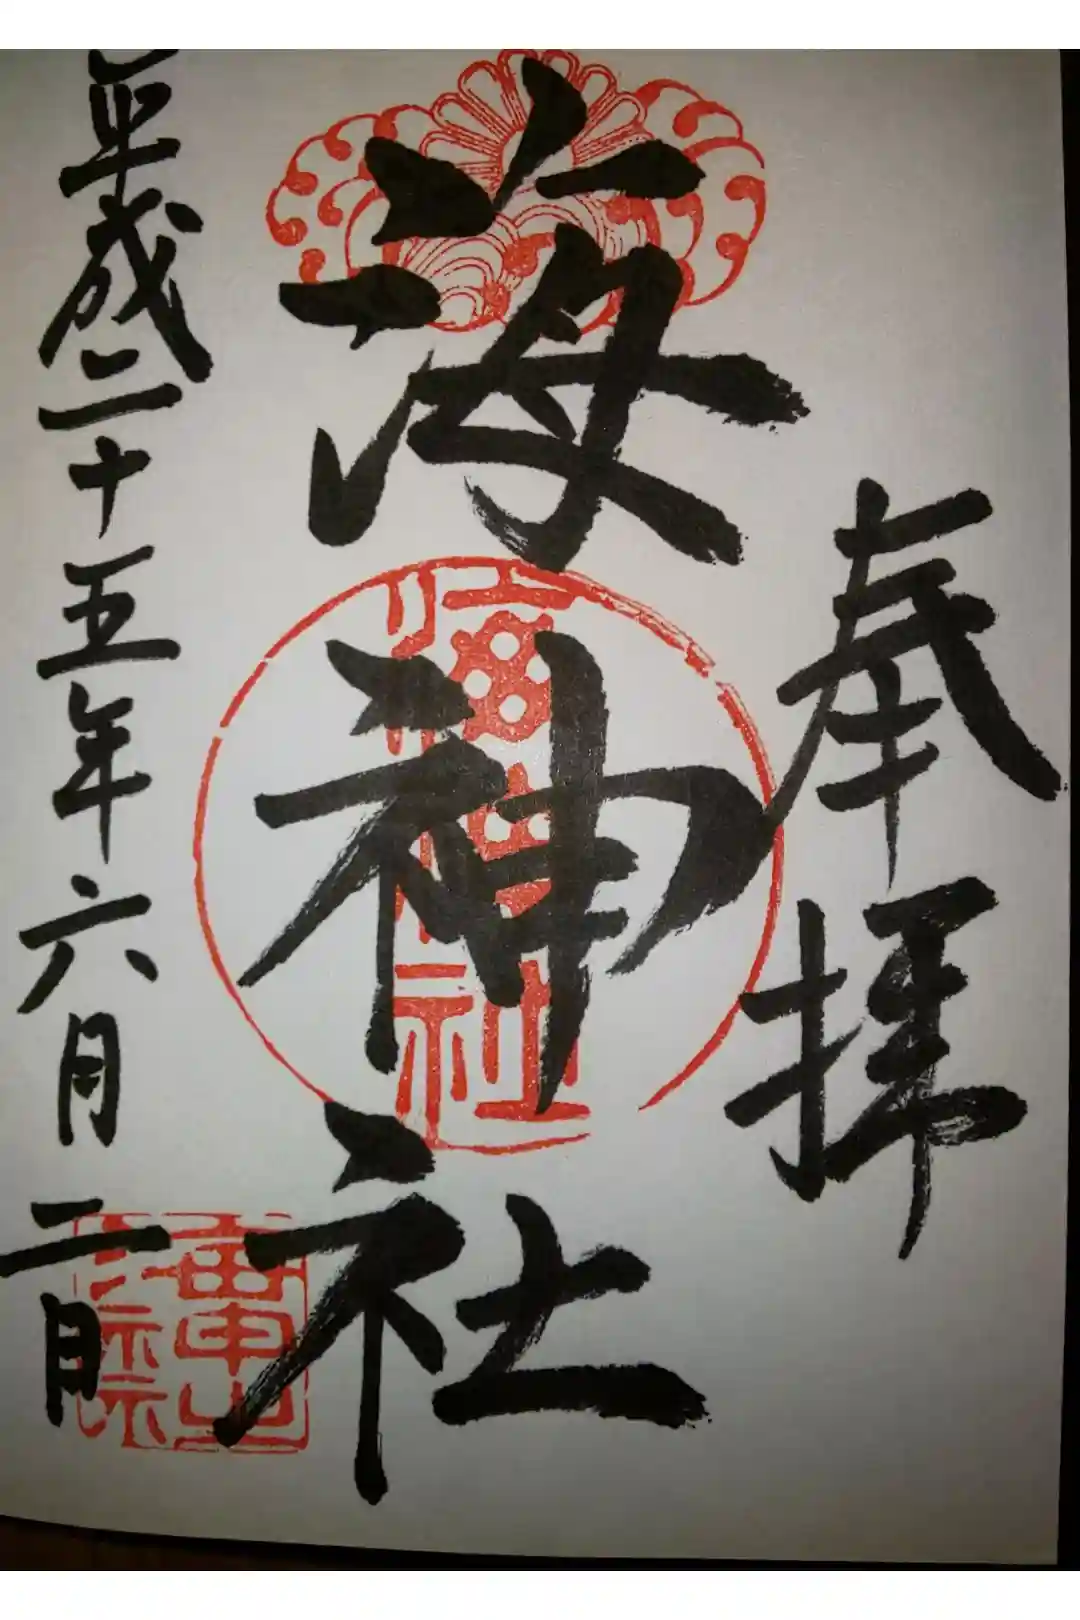 奉拝
海神社
平成二十五年六月二日